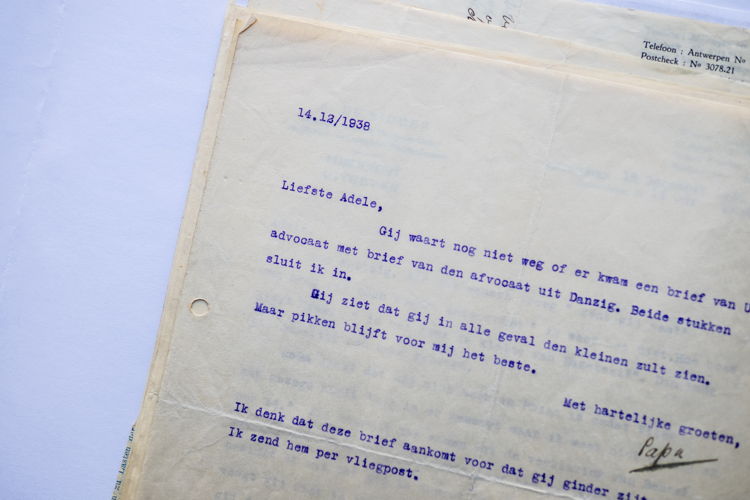 Telefoon : Antwerpen No
Postcheck : No 3078.21
14.12/1938
Liefste Adele,
Gij waart nog niet weg of er kwam een brief van U
advocaat met brief van den afvocaat uit Danzig. Beide stukken
sluit ik in.
Gij ziet dat gij in alle geval den kleinen zult zien.
Maar pikken blijft voor mij het beste.
Met hartelijke groeten,
Papa
Ik denk dat deze brief aankomt voor dat gij ginder zijt
Ik zend hem per vliegpost.